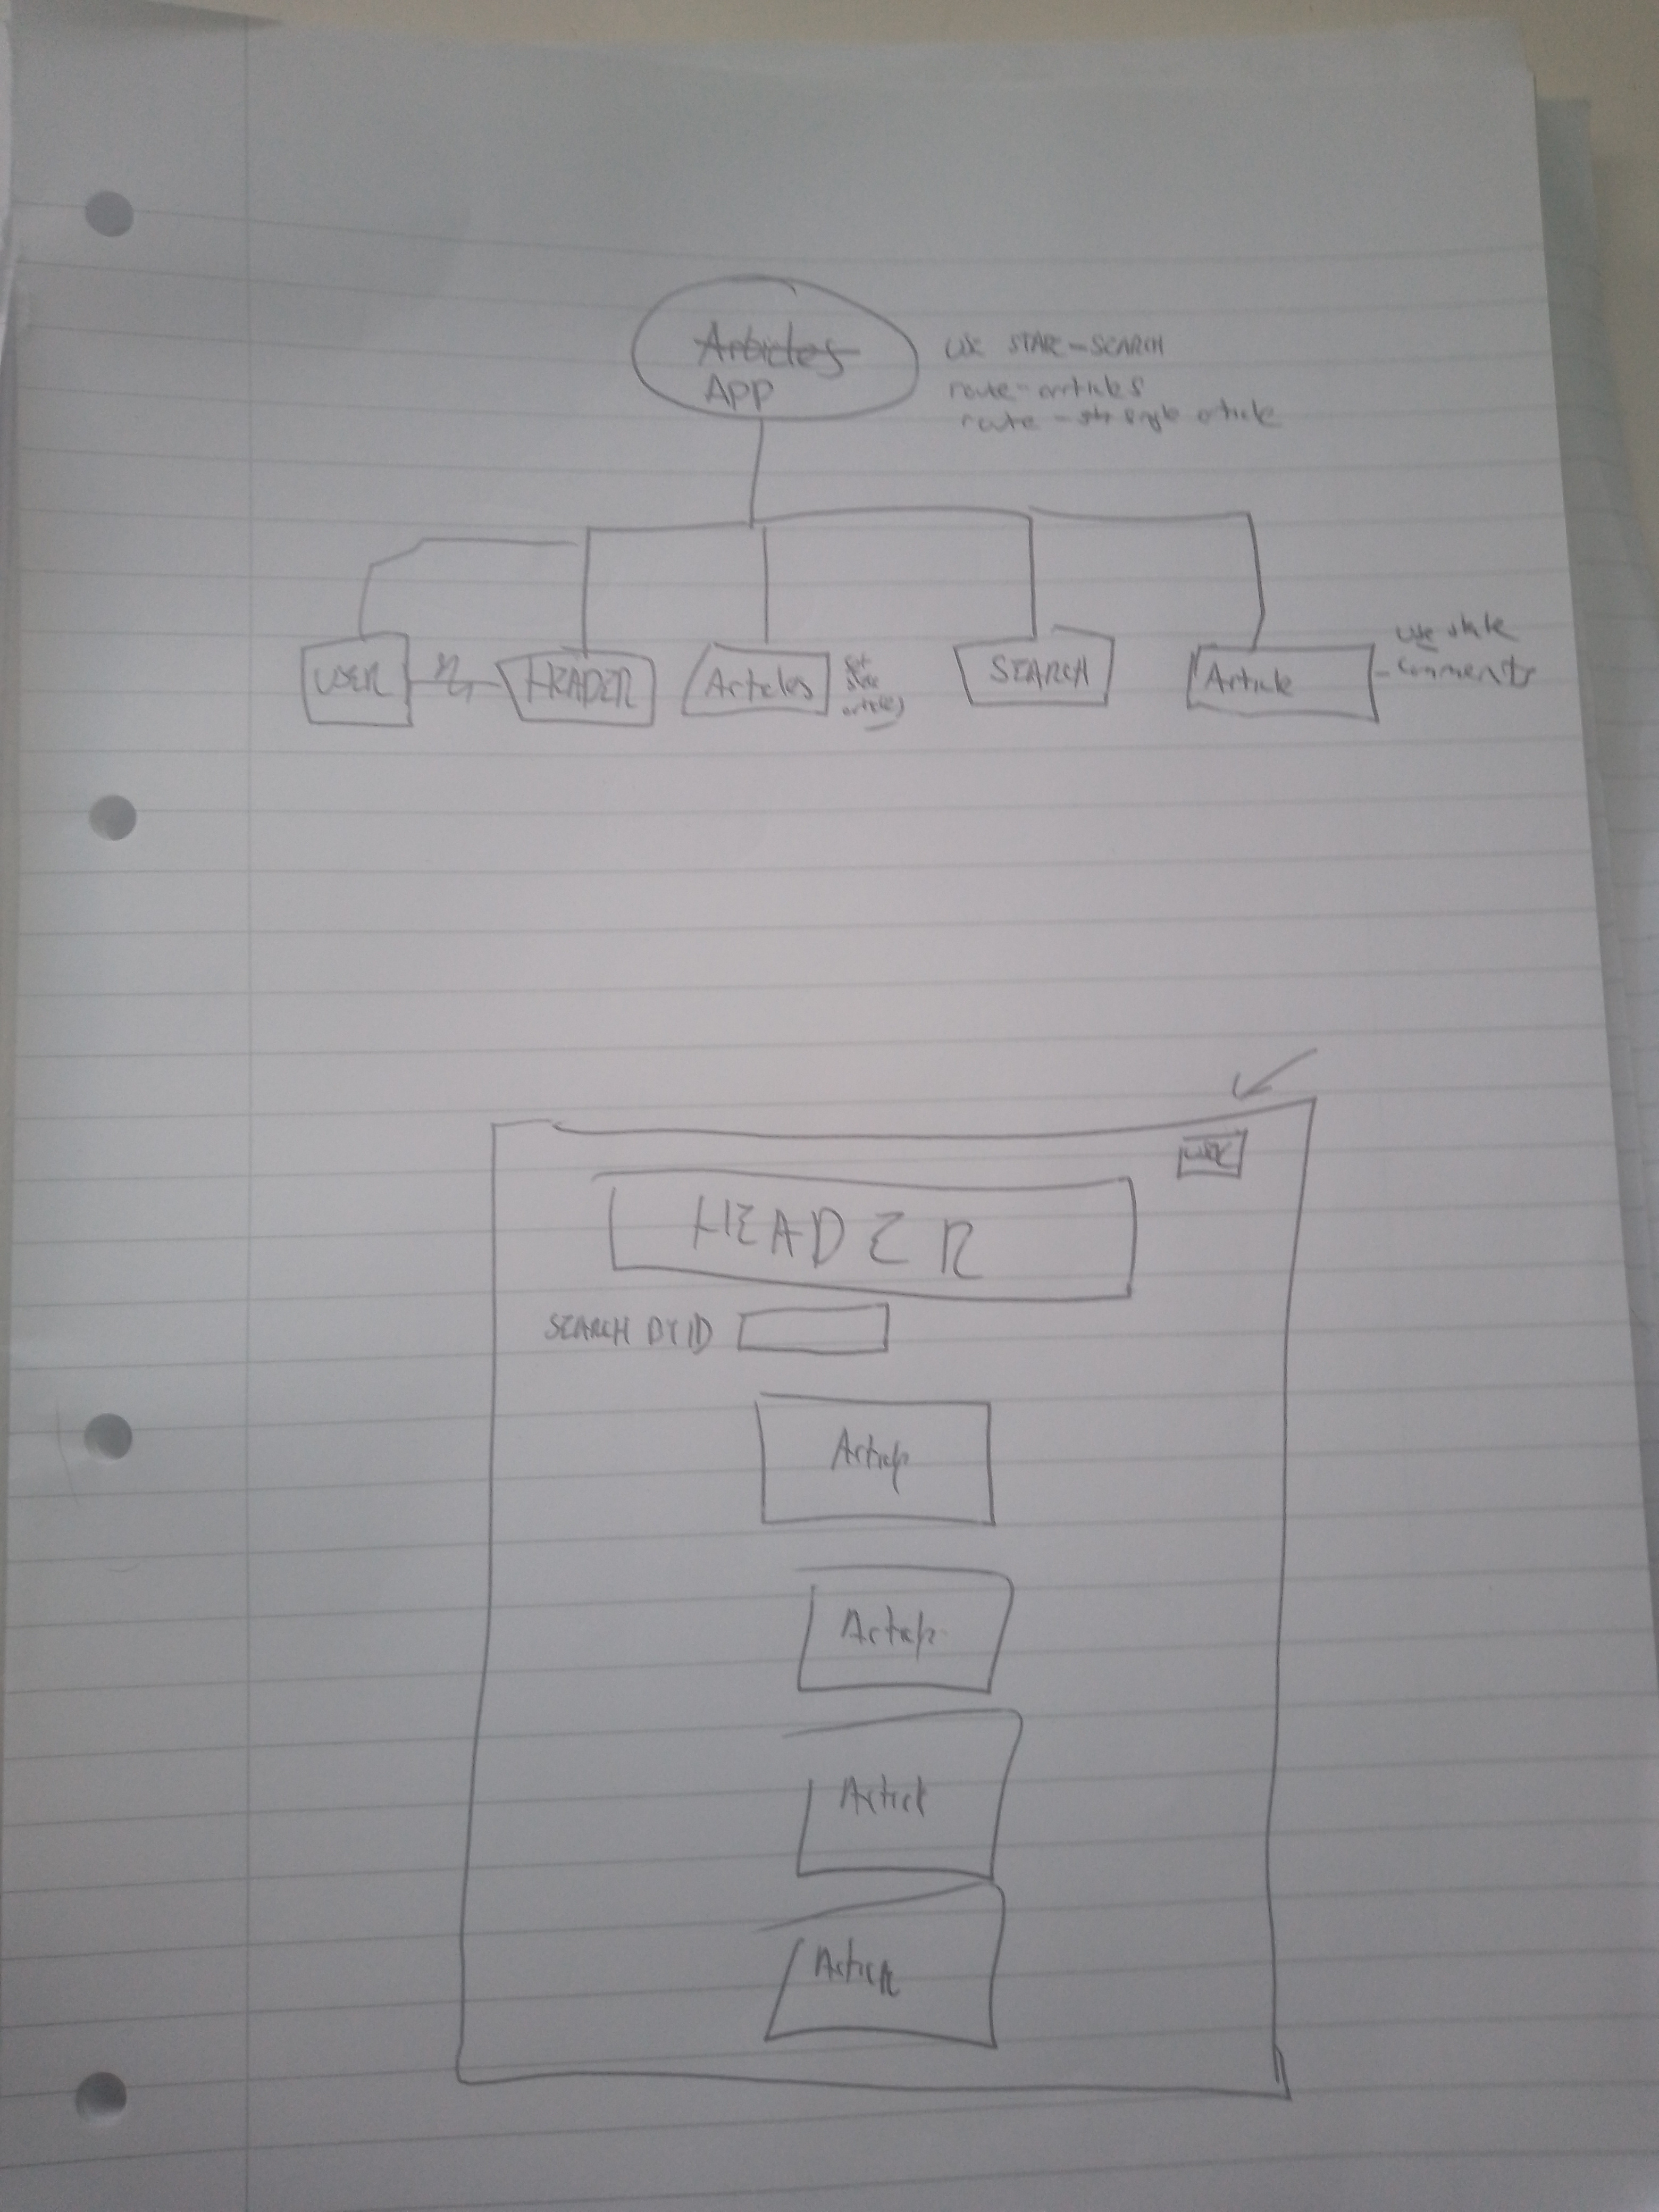 Articles
APP
USE STATE - SEARCH
route - articles
route - single article
USER
HEADER
Articles
set
state
articles
SEARCH
Article
use state
- comments
USER
HEADER
SEARCH BY ID
Article
Article
Article
Article